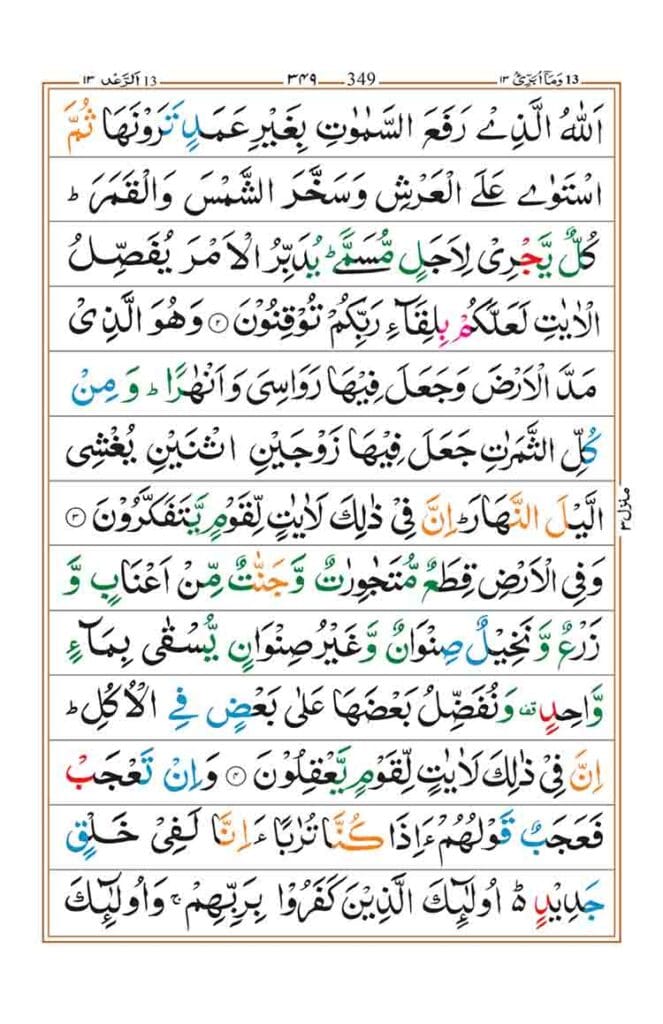 13 وَمَآ اُبَرِّئُ ١٣ 349 ٣٤٩ 13 اَلرَّعْد ١٣
اَللّٰهُ الَّذِیْ رَفَعَ السَّمٰوٰتِ بِغَیْرِ عَمَدٍ تَرَوْنَهَا ثُمَّ
اسْتَوٰی عَلَی الْعَرْشِ وَسَخَّرَ الشَّمْسَ وَالْقَمَرَ ؕ
كُلٌّ یَّجْرِیْ لِاَجَلٍ مُّسَمًّی ؕ یُدَبِّرُ الْاَمْرَ یُفَصِّلُ
الْاٰیٰتِ لَعَلَّكُمْ بِلِقَآءِ رَبِّكُمْ تُوْقِنُوْنَ ۝٢ وَهُوَ الَّذِیْ
مَدَّ الْاَرْضَ وَجَعَلَ فِیْهَا رَوَاسِیَ وَاَنْهٰرًا ؕ وَمِنْ
كُلِّ الثَّمَرٰتِ جَعَلَ فِیْهَا زَوْجَیْنِ اثْنَیْنِ یُغْشِی
الَّیْلَ النَّهَارَ ؕ اِنَّ فِیْ ذٰلِكَ لَاٰیٰتٍ لِّقَوْمٍ یَّتَفَكَّرُوْنَ ۝٣
وَفِی الْاَرْضِ قِطَعٌ مُّتَجٰوِرٰتٌ وَّجَنّٰتٌ مِّنْ اَعْنَابٍ وَّ
زَرْعٌ وَّنَخِیْلٌ صِنْوَانٌ وَّغَیْرُ صِنْوَانٍ یُّسْقٰی بِمَآءٍ
وَّاحِدٍ ۫ وَنُفَضِّلُ بَعْضَهَا عَلٰی بَعْضٍ فِی الْاُكُلِ ؕ
اِنَّ فِیْ ذٰلِكَ لَاٰیٰتٍ لِّقَوْمٍ یَّعْقِلُوْنَ ۝٤ وَاِنْ تَعْجَبْ
فَعَجَبٌ قَوْلُهُمْ ءَاِذَا كُنَّا تُرٰبًا ءَاِنَّا لَفِیْ خَلْقٍ
جَدِیْدٍ ؕ۬ اُولٰٓئِكَ الَّذِیْنَ كَفَرُوْا بِرَبِّهِمْ ۚ وَاُولٰٓئِكَ
منزل ٣